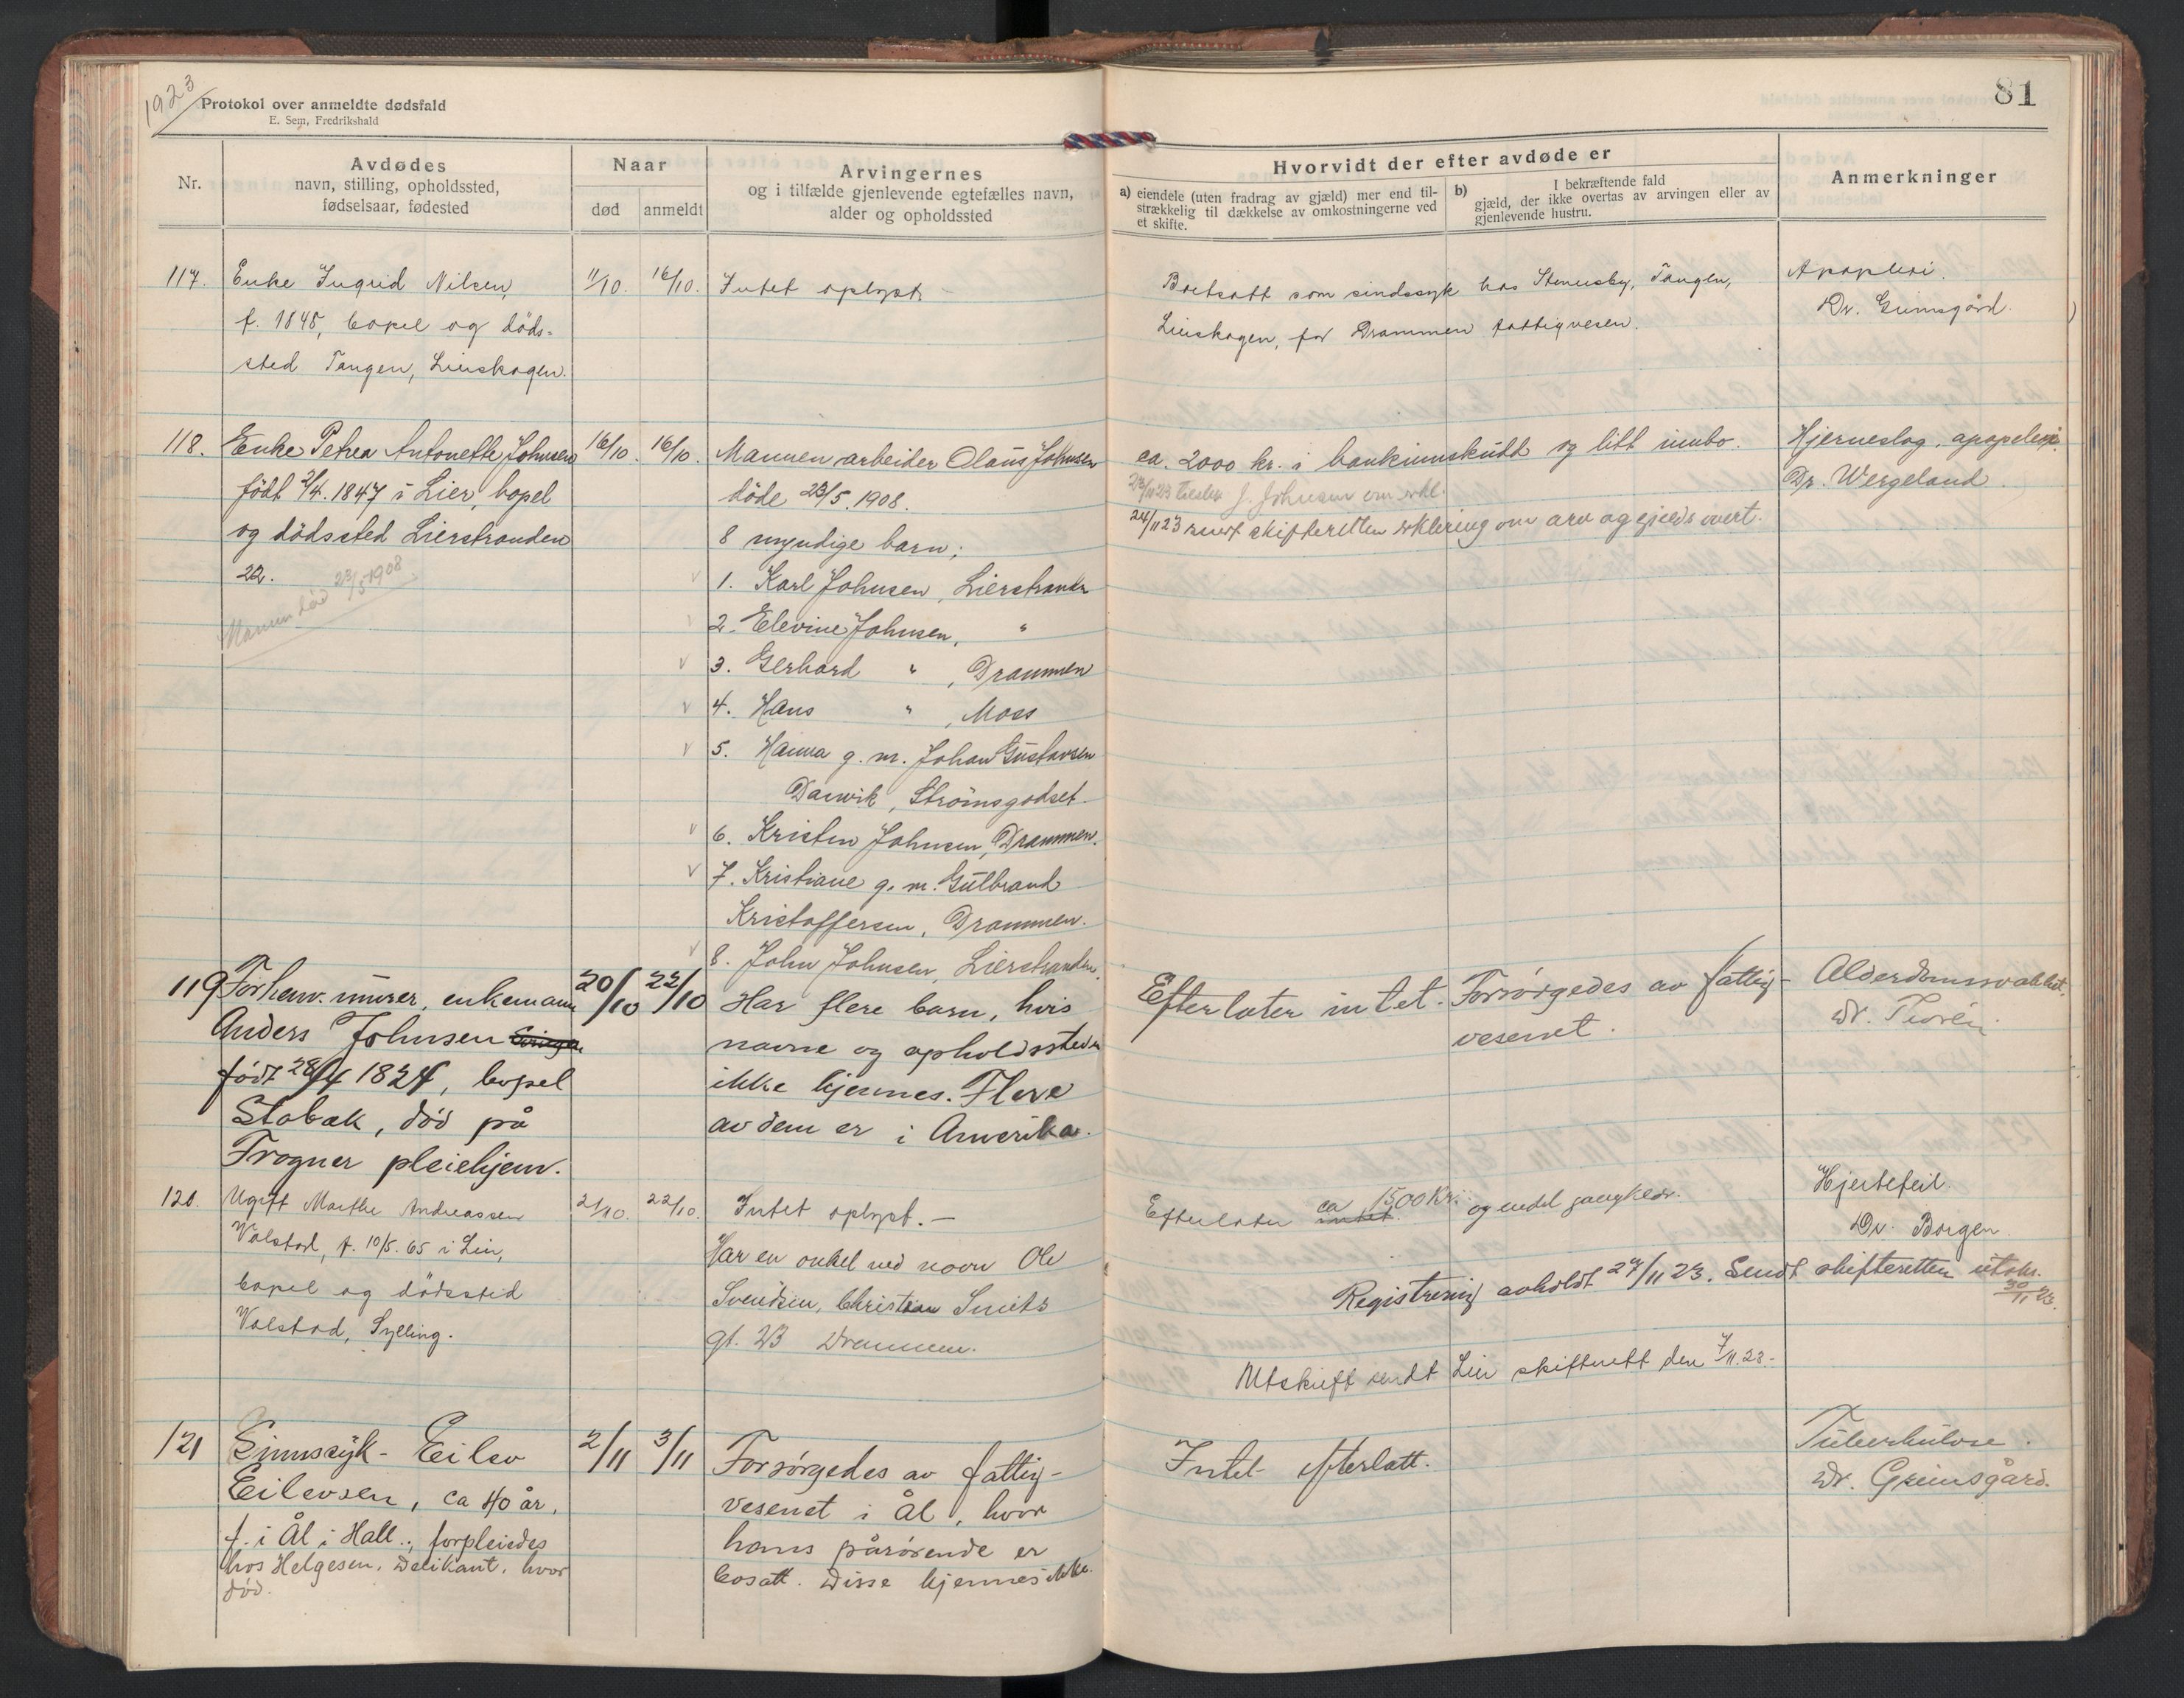 1923
Protokol over anmeldte dødsfald
E. Sem, Fredrikshald
81
Nr.
Avdødes
navn, stilling, opholdssted,
fødselsaar, fødested
Naar
død
anmeldt
Arvingernes
og i tilfælde gjenlevende egtefælles navn,
alder og opholdssted
Hvorvidt der efter avdøde er
a) eiendele (uten fradrag av gjæld) mer end til-
strækkelig til dækkelse av omkostningerne ved
et skifte.
b) I bekræftende fald
gjæld, der ikke overtas av arvingen eller av
gjenlevende hustru.
Anmerkninger
117.
Enke Ingrid Nilsen,
f. 1848, bopel og døds-
sted Tangen, Lierskogen.
11/10.
16/10.
Intet oplyst. —
Bortsatt som sindssyk hos Stenersby, Tangen,
Lierskogen, for Drammen fattigvesen.
Apoplexi.
Dr. Grimsgård.
118.
Enke Petrea Antonette Johnsen
født 2/4. 1847 i Lier, bopel
og dødssted Lierstranden
22.
Mannen død 23/5 1908
16/10.
16/10.
Mannen arbeider Olaus Johnsen
døde 23/5. 1908.
8 myndige barn;
1. Karl Johnsen, Lierstranda
2. Elevine Johnsen, "
3. Gerhard " , Drammen
4. Hans " , Moss
5. Hanna g. m. Johan Gustavsen
Danvik, Strømsgodset.
6. Kristen Johnsen, Drammen.
7. Kristiane g. m. Gulbrand
Kristoffersen, Drammen.
8. John Johnsen, Lierstranden.
ca. 2000 kr. i bankinnskudd og litt innbo.
23/11 23 J. Johnsen om erkl.
24/11 23 sendt skifteretten erklæring om arv og gjelds overt.
Hjerneslag, apopleksi.
Dr. Wergeland
119
Forhenv. murer, enkemann
Anders Johnsen
født 28/4 1824, bopel
Stabæk, død på
Frogner pleiehjem.
20/10
22/10
Har flere barn, hvis
navne og opholdssteder
ikke kjennes. Flere
av dem er i Amerika.
Efterlater intet.
Forsørgedes av fattig-
vesenet.
Alderdomssvakhet.
Dr. Thorén
120.
Ugift Marthe Andreassen
Valstad, f. 10/5. 65 i Lier,
bopel og dødssted
Valstad, Sylling.
21/10.
22/10.
Intet oplyst. —
Har en onkel ved navn Ole
Svendsen, Christian Smiths
gt. 23 Drammen.
Efterlater intet ca 1500 Kr. og endel gangklær.
Registrering avholdt 27/11 23. Sendt skifteretten utskr.
30/11 23.
Utskrift sendt Lier skifterett den 7/11. 23.-
Hjertefeil.
Dr. Borgen
121
Sinnssyk - Eilev
Eilevsen, ca 40 år,
f. i Ål i Hall., forpleiedes
hos Helgesen, Delikant, hvor
død.
2/11
3/11
Forsørgedes av fattig-
vesenet i Ål, hvor
hans pårørende er
bosatt. Disse kjennes ikke.
Intet efterlatt.
Tuberkulose.
Dr. Grimsgård.